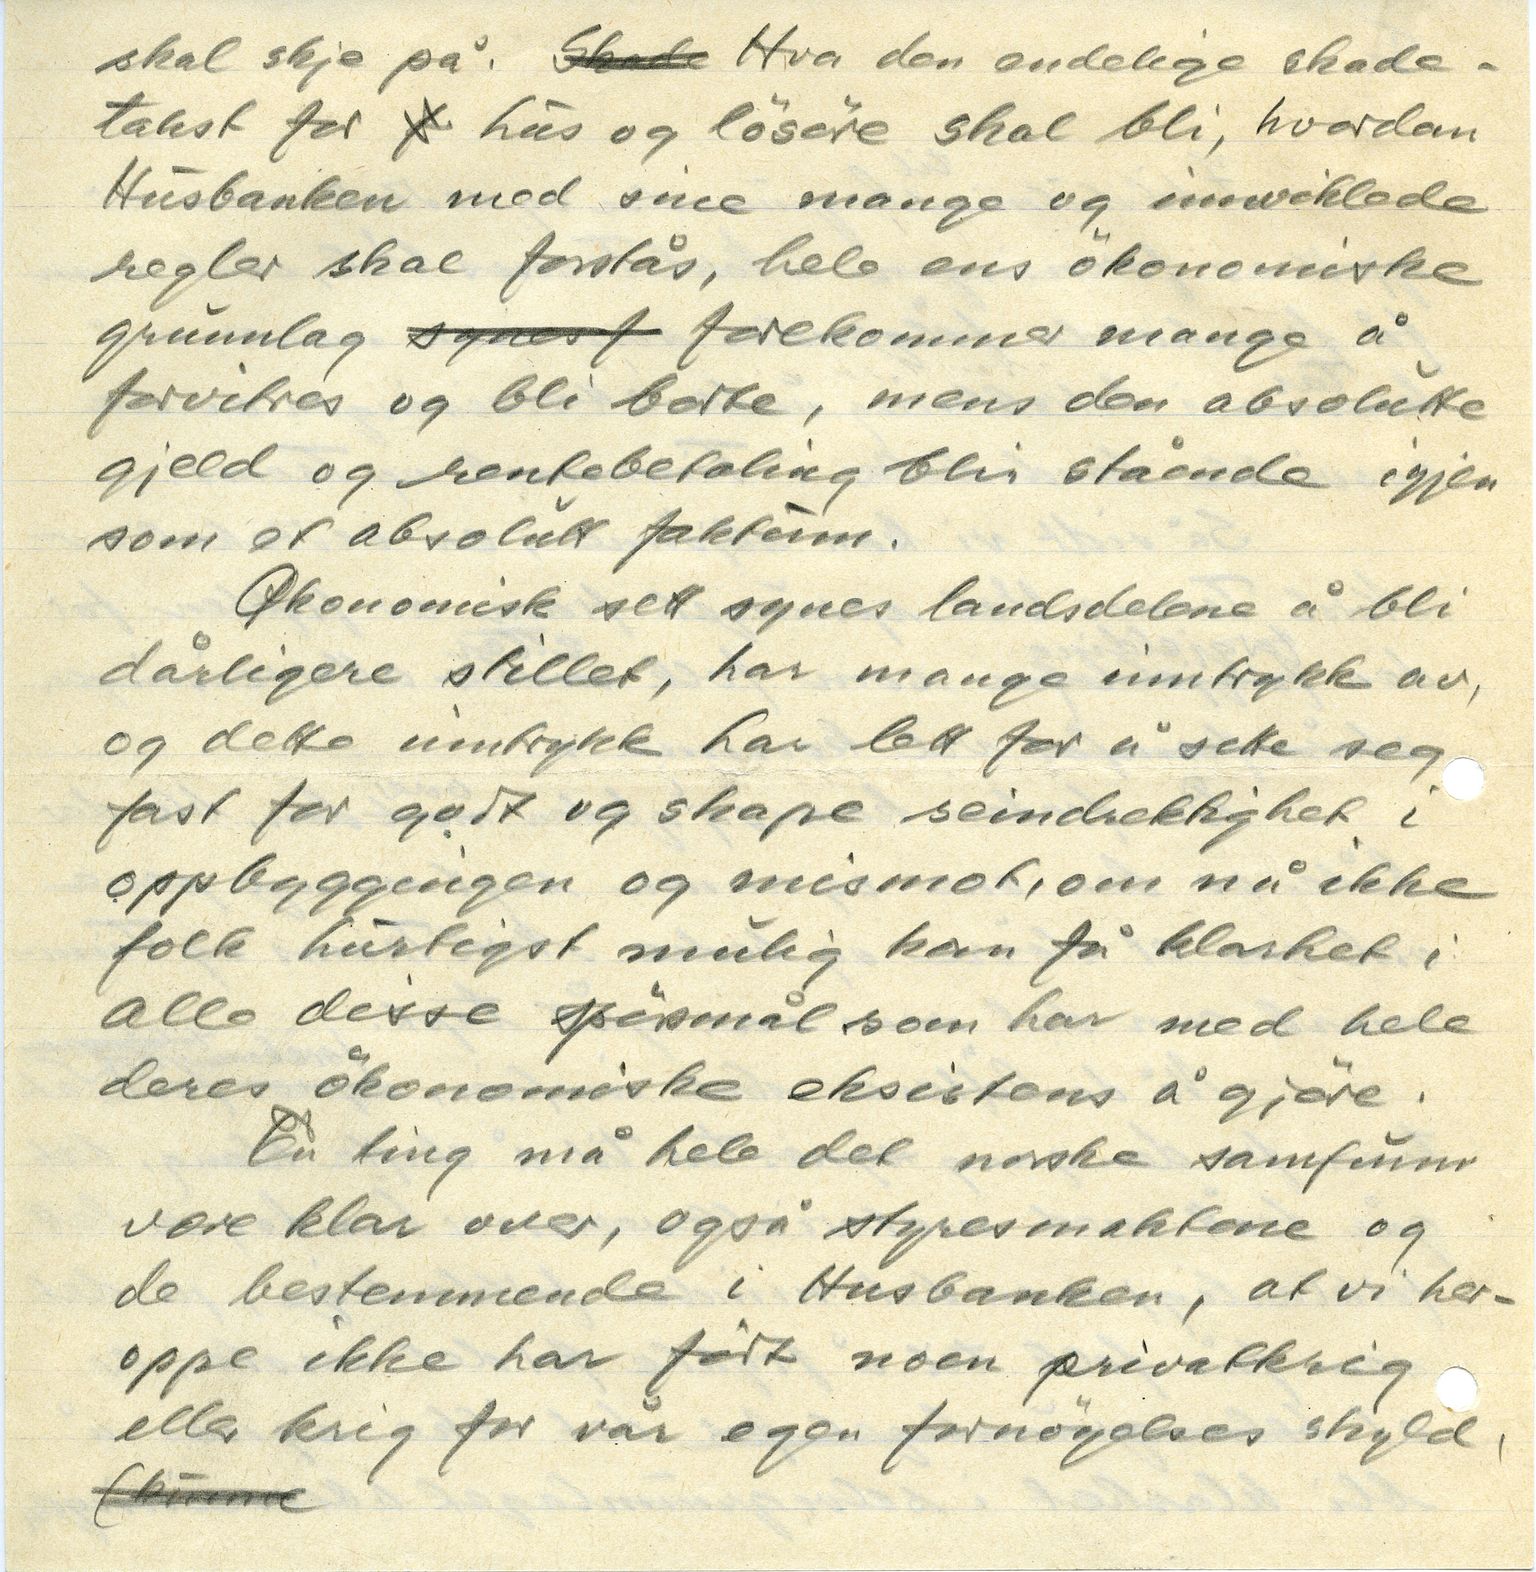 skal skje på. Skade Hva den endelige skade-
takst for hūs og lösöre skal bli, hvordan
Hūsbanken med sine mange og innviklede
regler skal forstås, hele ens ökonomiske
grūnnlag synes f forekommer mange å
forvitres og bli borte, mens den absolūtte
gjeld og rentebetaling blir stående igjen
som et absolūtt faktūm.
Økonomisk sett synes landsdelene å bli
dårligere stillet, har mange inntrykk av,
og dette inntrykk har lett for å sette seg
fast for godt og skape seindrektighet i
oppbyggingen og mismot, om nå ikke
folk hūrtigst mūlig kan få klarhet i
alle disse spörsmål som har med hele
deres ökonomiske eksistens å gjöre.
En ting må hele det norske samfūnn
være klar over, også styresmaktene og
de bestemmende i Husbanken, at vi her-
oppe ikke har fört noen privatkrig
eller krig for vår egen fornöyelses skyld,
(kūnne